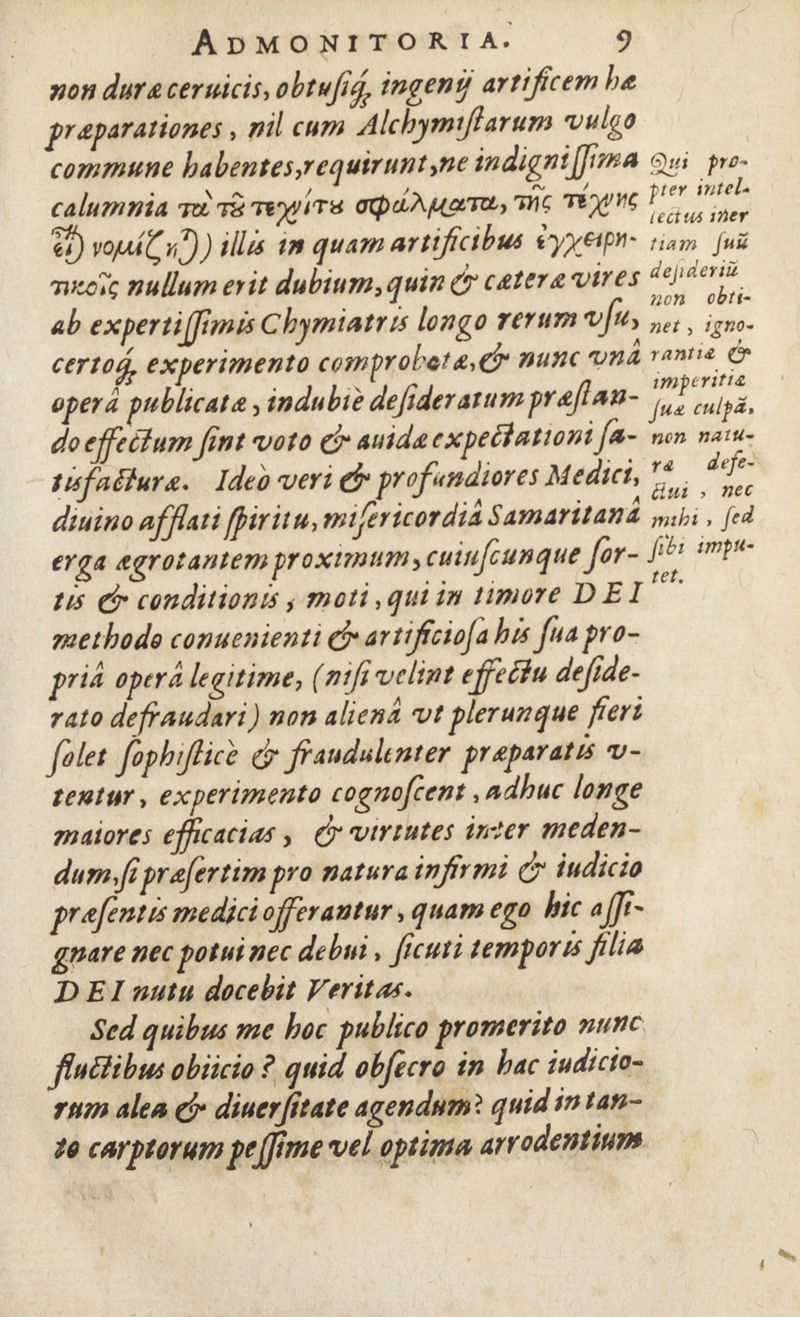 ADMONITORIA. 9
non duræ ceruicis, obtuſiq́; ingenij artificem hæ
præparationes, nil cum Alchymiſtarum vulgo
commune habentes, requirunt, ne indigniſſima
calumnia τὰ τȣ̃ τεχνίτȣ σφάλματα, τῆς τέχνης
ἐῖ) νομίζη)) illis in quam artificibus ἐγχειρη-
τικοῖς nullum erit dubium, quin & cæteræ vires
ab expertiſſimis Chymiatris longo rerum vſu,
certoq́; experimento comprobatæ, & nunc vnâ
operâ publicatæ, indubiè deſideratum præſtan-
do effectum ſint voto & auidæ expectationi ſa-
tisfacturæ. Ideò veri & profundiores Medici,
diuino afflati ſpiritu, miſericordiâ Samaritanâ
erga ægrotantem proximum, cuiuſcunque ſor-
tis & conditionis, moti, qui in timore DEI
methodo conuenienti & artificioſa his ſua pro-
priâ operâ legitime, (niſi velint effectu deſide-
rato defraudari) non alienâ vt plerunque fieri
ſolet ſophiſticè & fraudulenter præparatis v-
tentur, experimento cognoſcent, adhuc longe
maiores efficacias, & virtutes inter meden-
dum, ſi præſertim pro natura infirmi & iudicio
præſentis medici offerantur, quam ego hic aſſi-
gnare nec potui nec debui, ſicuti temporis filia
DEI nutu docebit Veritas.
Sed quibus me hoc publico promerito nunc
fluctibus obiicio? quid obſecro in hac iudicio-
rum alea & diuerſitate agendum? quid in tan-
to carptorum peſſime vel optima arrodentium
Qui pro-
pter intel-
lectus iner
tiam ſuũ
deſideriũ
non obti-
net, igno-
rantiæ &
imperitiæ
ſuæ culpã,
non natu-
ræ defe-
ctui, nec
mihi, ſed
ſibi impu-
tet.